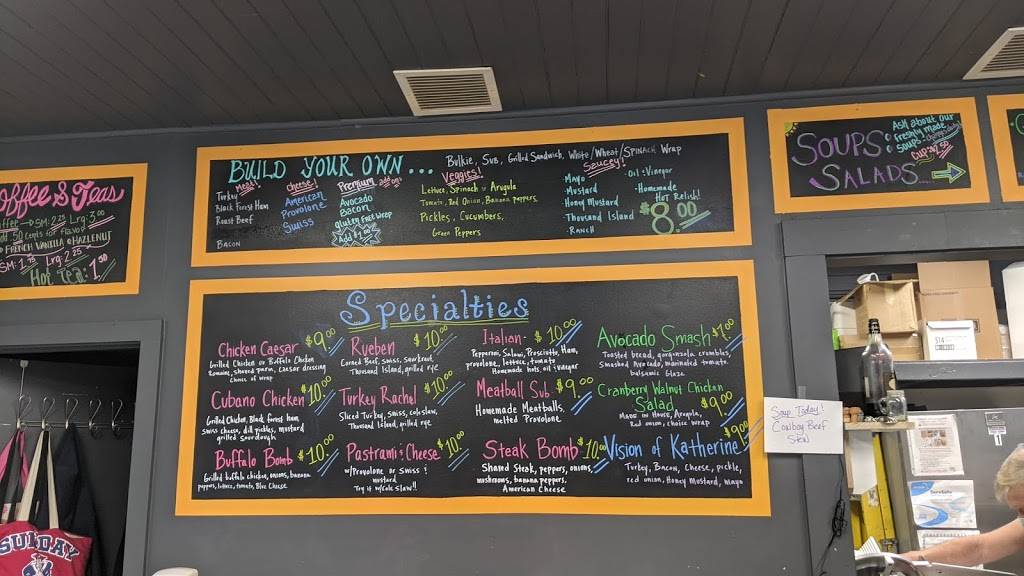 offee & Teas
SM: 2.25 Lrg: 3.00
50 cents for flavor!
FRENCH VANILLA HAZLENUT
SM: 1.75 Lrg: 2.25
Hot Tea: 1.50
BUILD YOUR OWN...
Bulkie, Sub, Grilled Sandwich, White/Wheat/Spinach Wrap
Meat!
Turkey
Black Forest Ham
Roast Beef
BACON
Cheese!
American
Provolone
Swiss
Premium add ons
Avocado
Bacon
gluten free wrap
Add
Veggies!
Lettuce, Spinach or Arugula
Tomato, Red Onion, Banana peppers,
Pickles, Cucumbers,
Green Peppers
Saucey!
-Mayo
-Mustard
Honey Mustard
Thousand Island
-RANCH
-Oil & Vinegar
-Homemade
Hot Relish!
$8.00
SOUPS &
SALADS...
Ask about our
freshly made
soups &
Cup
Specialties
Chicken Caesar $9.00
Grilled Chicken or Buffalo Chicken
Romaine, shaved parm, caesar dressing
Choice of wrap
Cubano Chicken $10.00
Grilled Chicken, Black forest ham
Swiss cheese, dill pickles, mustard
grilled sourdough
Buffalo Bomb $10.00
Grilled buffalo chicken, onions, banana
peppers, lettuce, tomato, Blue Cheese
Rueben $10.00
Corned Beef, Swiss, sauerkraut,
Thousand Island, grilled rye
Turkey Rachel $10.00
Sliced Turkey, Swiss, coleslaw,
Thousand Island, grilled rye
Pastrami & Cheese $10.00
w/Provolone or Swiss &
mustard
Try it w/cole slaw!!
Italian- $10.00
Pepperoni, Salami, Prosciutto, Ham,
provolone, lettuce, tomato
homemade hots, oil & vinegar
Meatball Sub $9.00
Homemade Meatballs,
melted Provolone
Steak Bomb $10.00
Shaved Steak, peppers, onions,
mushrooms, banana peppers,
American Cheese
Avocado Smash $9.00
Toasted bread, gorgonzola crumbles,
Smashed Avocado, marinated tomato,
balsamic glaze
Cranberry Walnut Chicken
Salad $9.00
Made in House, Arugula,
Red onion, choice wrap
Vision of Katherine $9.00
Turkey, Bacon, Cheese, pickle,
red onion, Honey Mustard, mayo
Soup Today!
Cowboy Beef
Stew
SUNDAY